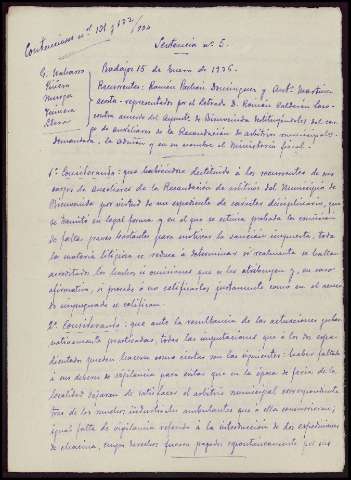 Contencioso nº 131 y 132/934
Sentencia nº 5.
Badajoz 15 de Enero de 1936.
Rivera
Murga
Recurrentes: Ramón Pachón Domínguez y Antº Martínez
representados por el Letrado D. Ramón
contra acuerdo del Ayuntº de Bienvenida destituyéndoles del cargo
de auxiliares de la Recaudación de arbitrios municipales.
Demandada, la Admón y en su nombre el Ministerio fiscal.
1º Considerando: que habiéndose destituido à los recurrentes de sus
cargos de Auxiliares de la Recaudación de arbitrios del Municipio de
Bienvenida por virtud de un expediente de carácter disciplinario, que
se tramitó en legal forma y en el que se estima probada la comisión
de faltas graves bastantes para motivar la sanción impuesta, toda
la materia litigiosa se reduce à determinar si realmente se hallan
acreditados los hechos u omisiones que se les atribuyen y, en caso
afirmativo, si procede o no calificarlos justamente como en el acuerdo
impugnado se califican.
2º Considerando: que ante la resultancia de las actuaciones guber-
nativamente practicadas, todas las imputaciones que à los dos expe-
dientados pueden hacerse como ciertas son las siguientes: haber faltado
à sus deberes de vigilancia para evitar que en la época de feria de la
localidad dejaran de satisfacer el arbitrio municipal correspondiente
tres de los muchos industriales ambulantes que à ella concurrieron;
igual falta de vigilancia referida à la introducción de dos expediciones
de chacina, cuyos derechos fueron pagados espontáneamente por sus